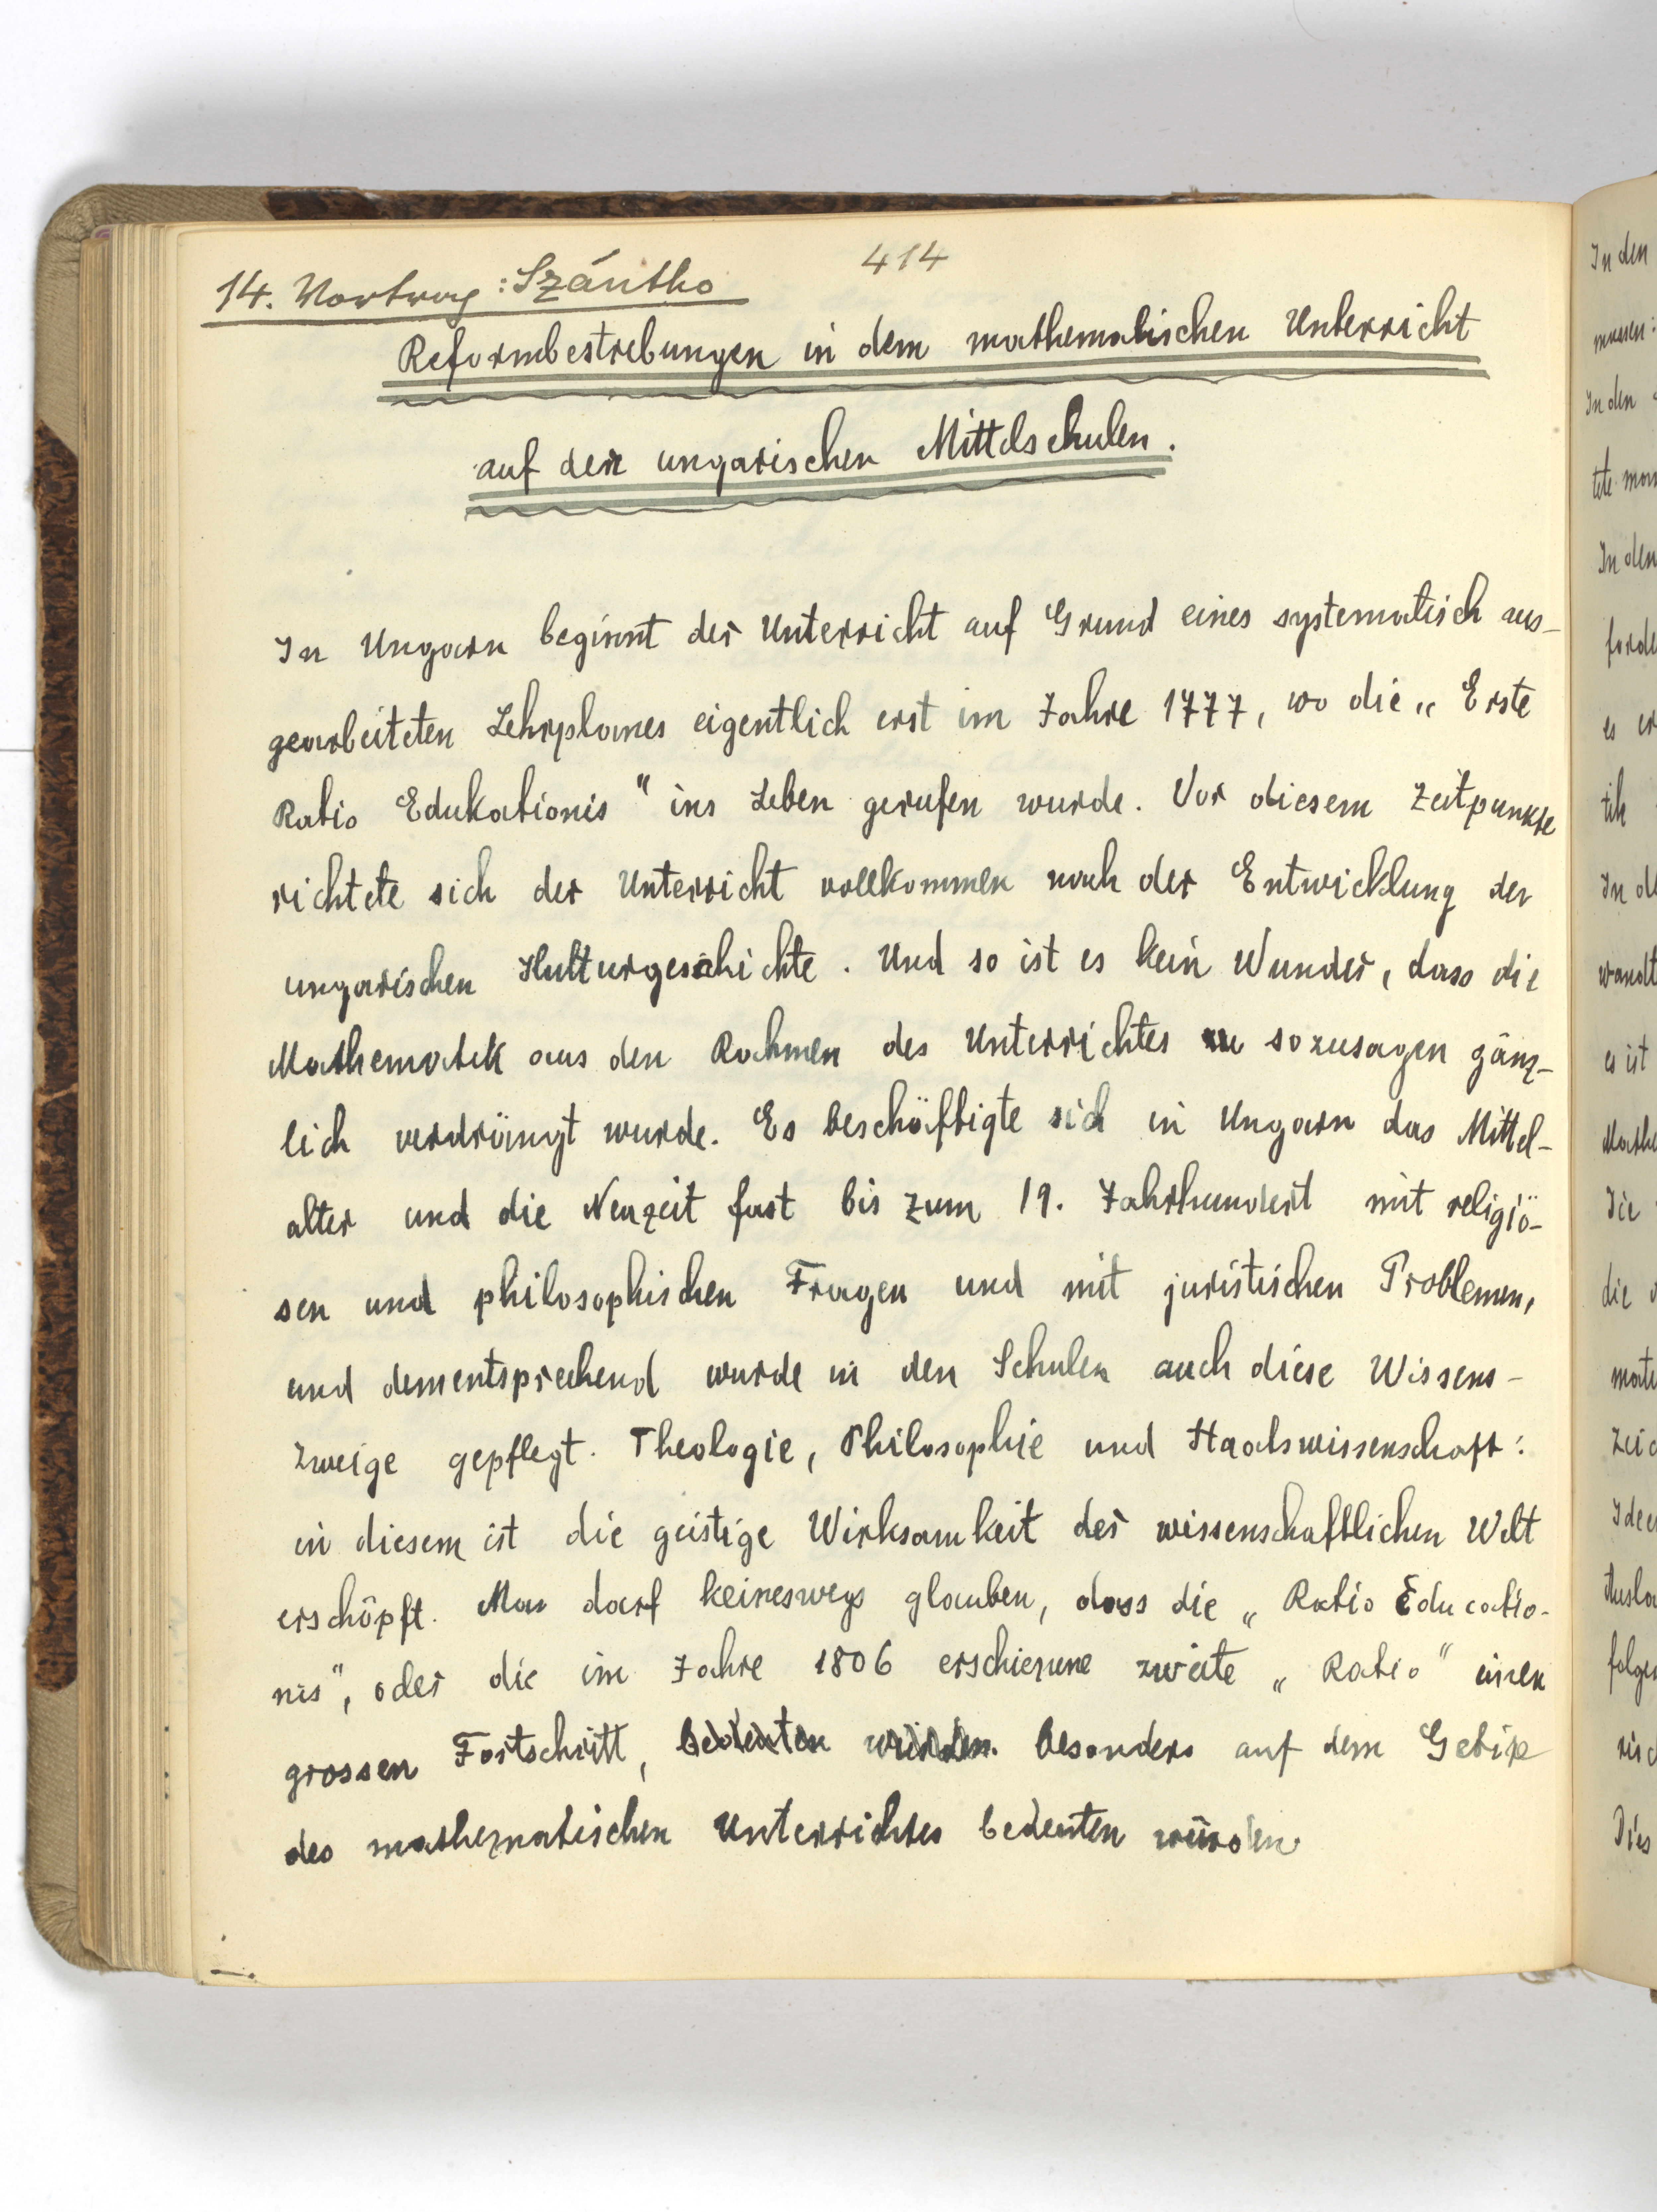 414
14. Vortrag: Szántho
Reformbestrebungen in dem mathematischen Unterricht
auf den ungarischen Mittelschulen.
In Ungarn beginnt der Unterricht auf Grund eines systematisch aus-
gearbeiteten Lehrplanes eigentlich erst im Jahre 1777, wo die „Erste
Ratio Edukationis" ins Leben gerufen wurde. Vor diesem Zeitpunkte
richtete sich der Unterricht vollkommen nach der Entwicklung der
ungarischen Kulturgeschichte. Und so ist es kein Wunder, dass die
Mathematik aus den Rahmen des Unterrichtes sozusagen gänz-
lich verdrängt wurde. Es beschäftigte sich in Ungarn das Mittel-
alter und die Neuzeit fast bis zum 19. Jahrhundert mit religiö-
sen und philosophischen Fragen und mit juristischen Problemen,
und dementsprechend wurde in den Schulen auch diese Wissens-
zweige gepflegt. Theologie, Philosophie und Staatswissenschaft:
in diesem ist die geistige Wirksamkeit der wissenschaftlichen Welt
erschöpft. Man darf keineswegs glauben, dass die „Ratio Educatio-
nis", oder die im Jahre 1806 erschienene zweite „Ratio" einen
grossen Fortschritt, bedeuten würden. besonders auf dem Gebiete
des mathematischen Unterrichtes bedeuten würden
In den
In den
tete man
In den
es er
tik
es ist
die